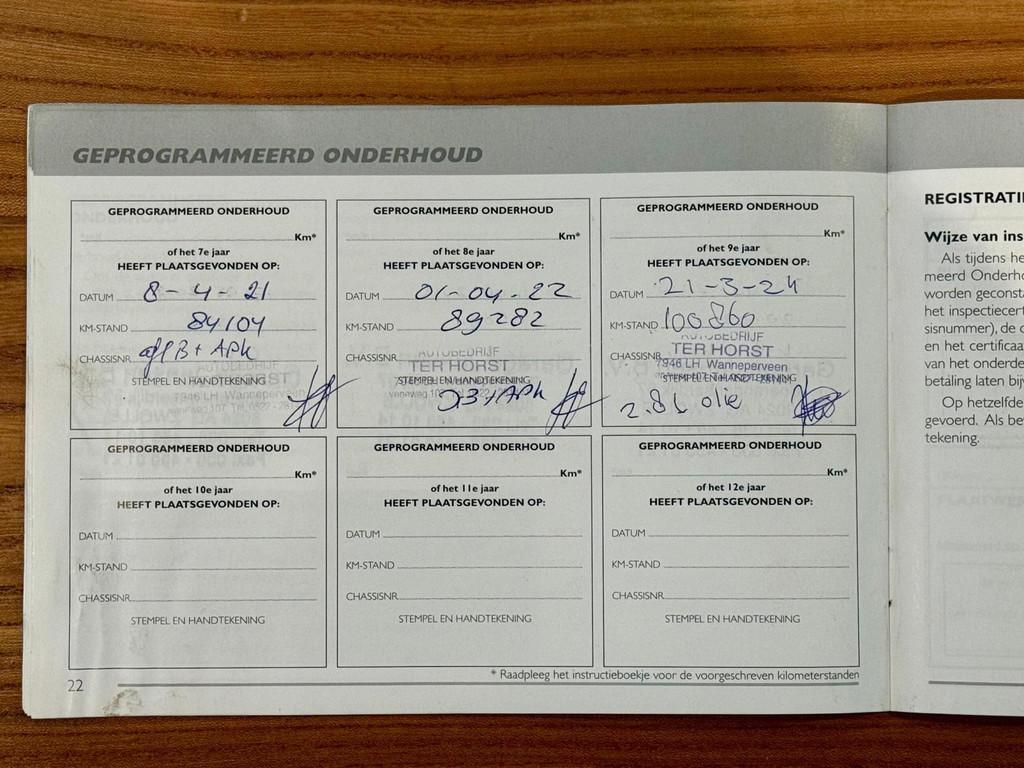 GEPROGRAMMEERD ONDERHOUD
GEPROGRAMMEERD ONDERHOUD
Km*
of het 7e jaar
HEEFT PLAATSGEVONDEN OP:
DATUM 8-4-21
KM-STAND 84104
CHASSISNR. B + APK
STEMPEL EN HANDTEKENING
7946 LH Wanneperveen
GEPROGRAMMEERD ONDERHOUD
Km*
of het 8e jaar
HEEFT PLAATSGEVONDEN OP:
DATUM 01-04-22
KM-STAND 89282
CHASSISNR.
AUTOBEDRIJF
TER HORST
STEMPEL EN HANDTEKENING
+ APK
GEPROGRAMMEERD ONDERHOUD
Km*
of het 9e jaar
HEEFT PLAATSGEVONDEN OP:
DATUM 21-3-24
KM-STAND 100860
CHASSISNR.
AUTOBEDRIJF
TER HORST
7946 LH Wanneperveen
STEMPEL EN HANDTEKENING
2.8L olie
GEPROGRAMMEERD ONDERHOUD
Km*
of het 10e jaar
HEEFT PLAATSGEVONDEN OP:
DATUM
KM-STAND
CHASSISNR.
STEMPEL EN HANDTEKENING
GEPROGRAMMEERD ONDERHOUD
Km*
of het 11e jaar
HEEFT PLAATSGEVONDEN OP:
DATUM
KM-STAND
CHASSISNR.
STEMPEL EN HANDTEKENING
GEPROGRAMMEERD ONDERHOUD
Km*
of het 12e jaar
HEEFT PLAATSGEVONDEN OP:
DATUM
KM-STAND
CHASSISNR.
STEMPEL EN HANDTEKENING
* Raadpleeg het instructieboekje voor de voorgeschreven kilometerstanden
22
REGISTRATI
Wijze van ins
Als tijdens he
meerd Onderho
worden geconsta
het inspectiecert
sisnummer), de d
en het certificaa
van het onderde
betaling laten bijv
Op hetzelfde
gevoerd. Als bev
tekening.